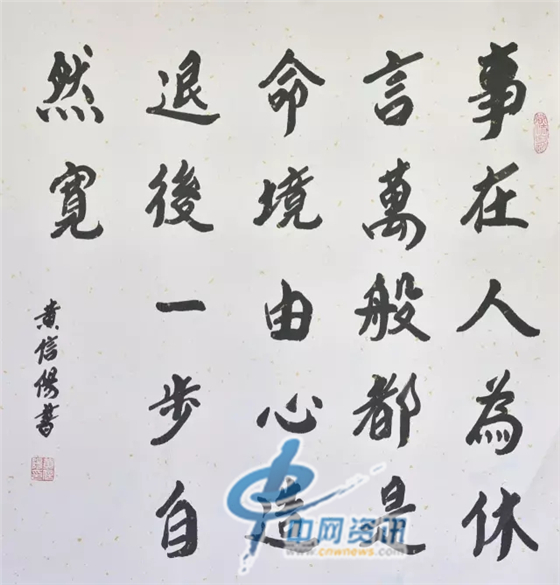 事在人為休
言萬般都是
命境由心造
退後一步自
然寬
黄信陽書
中网资讯
www.cnwnews.com